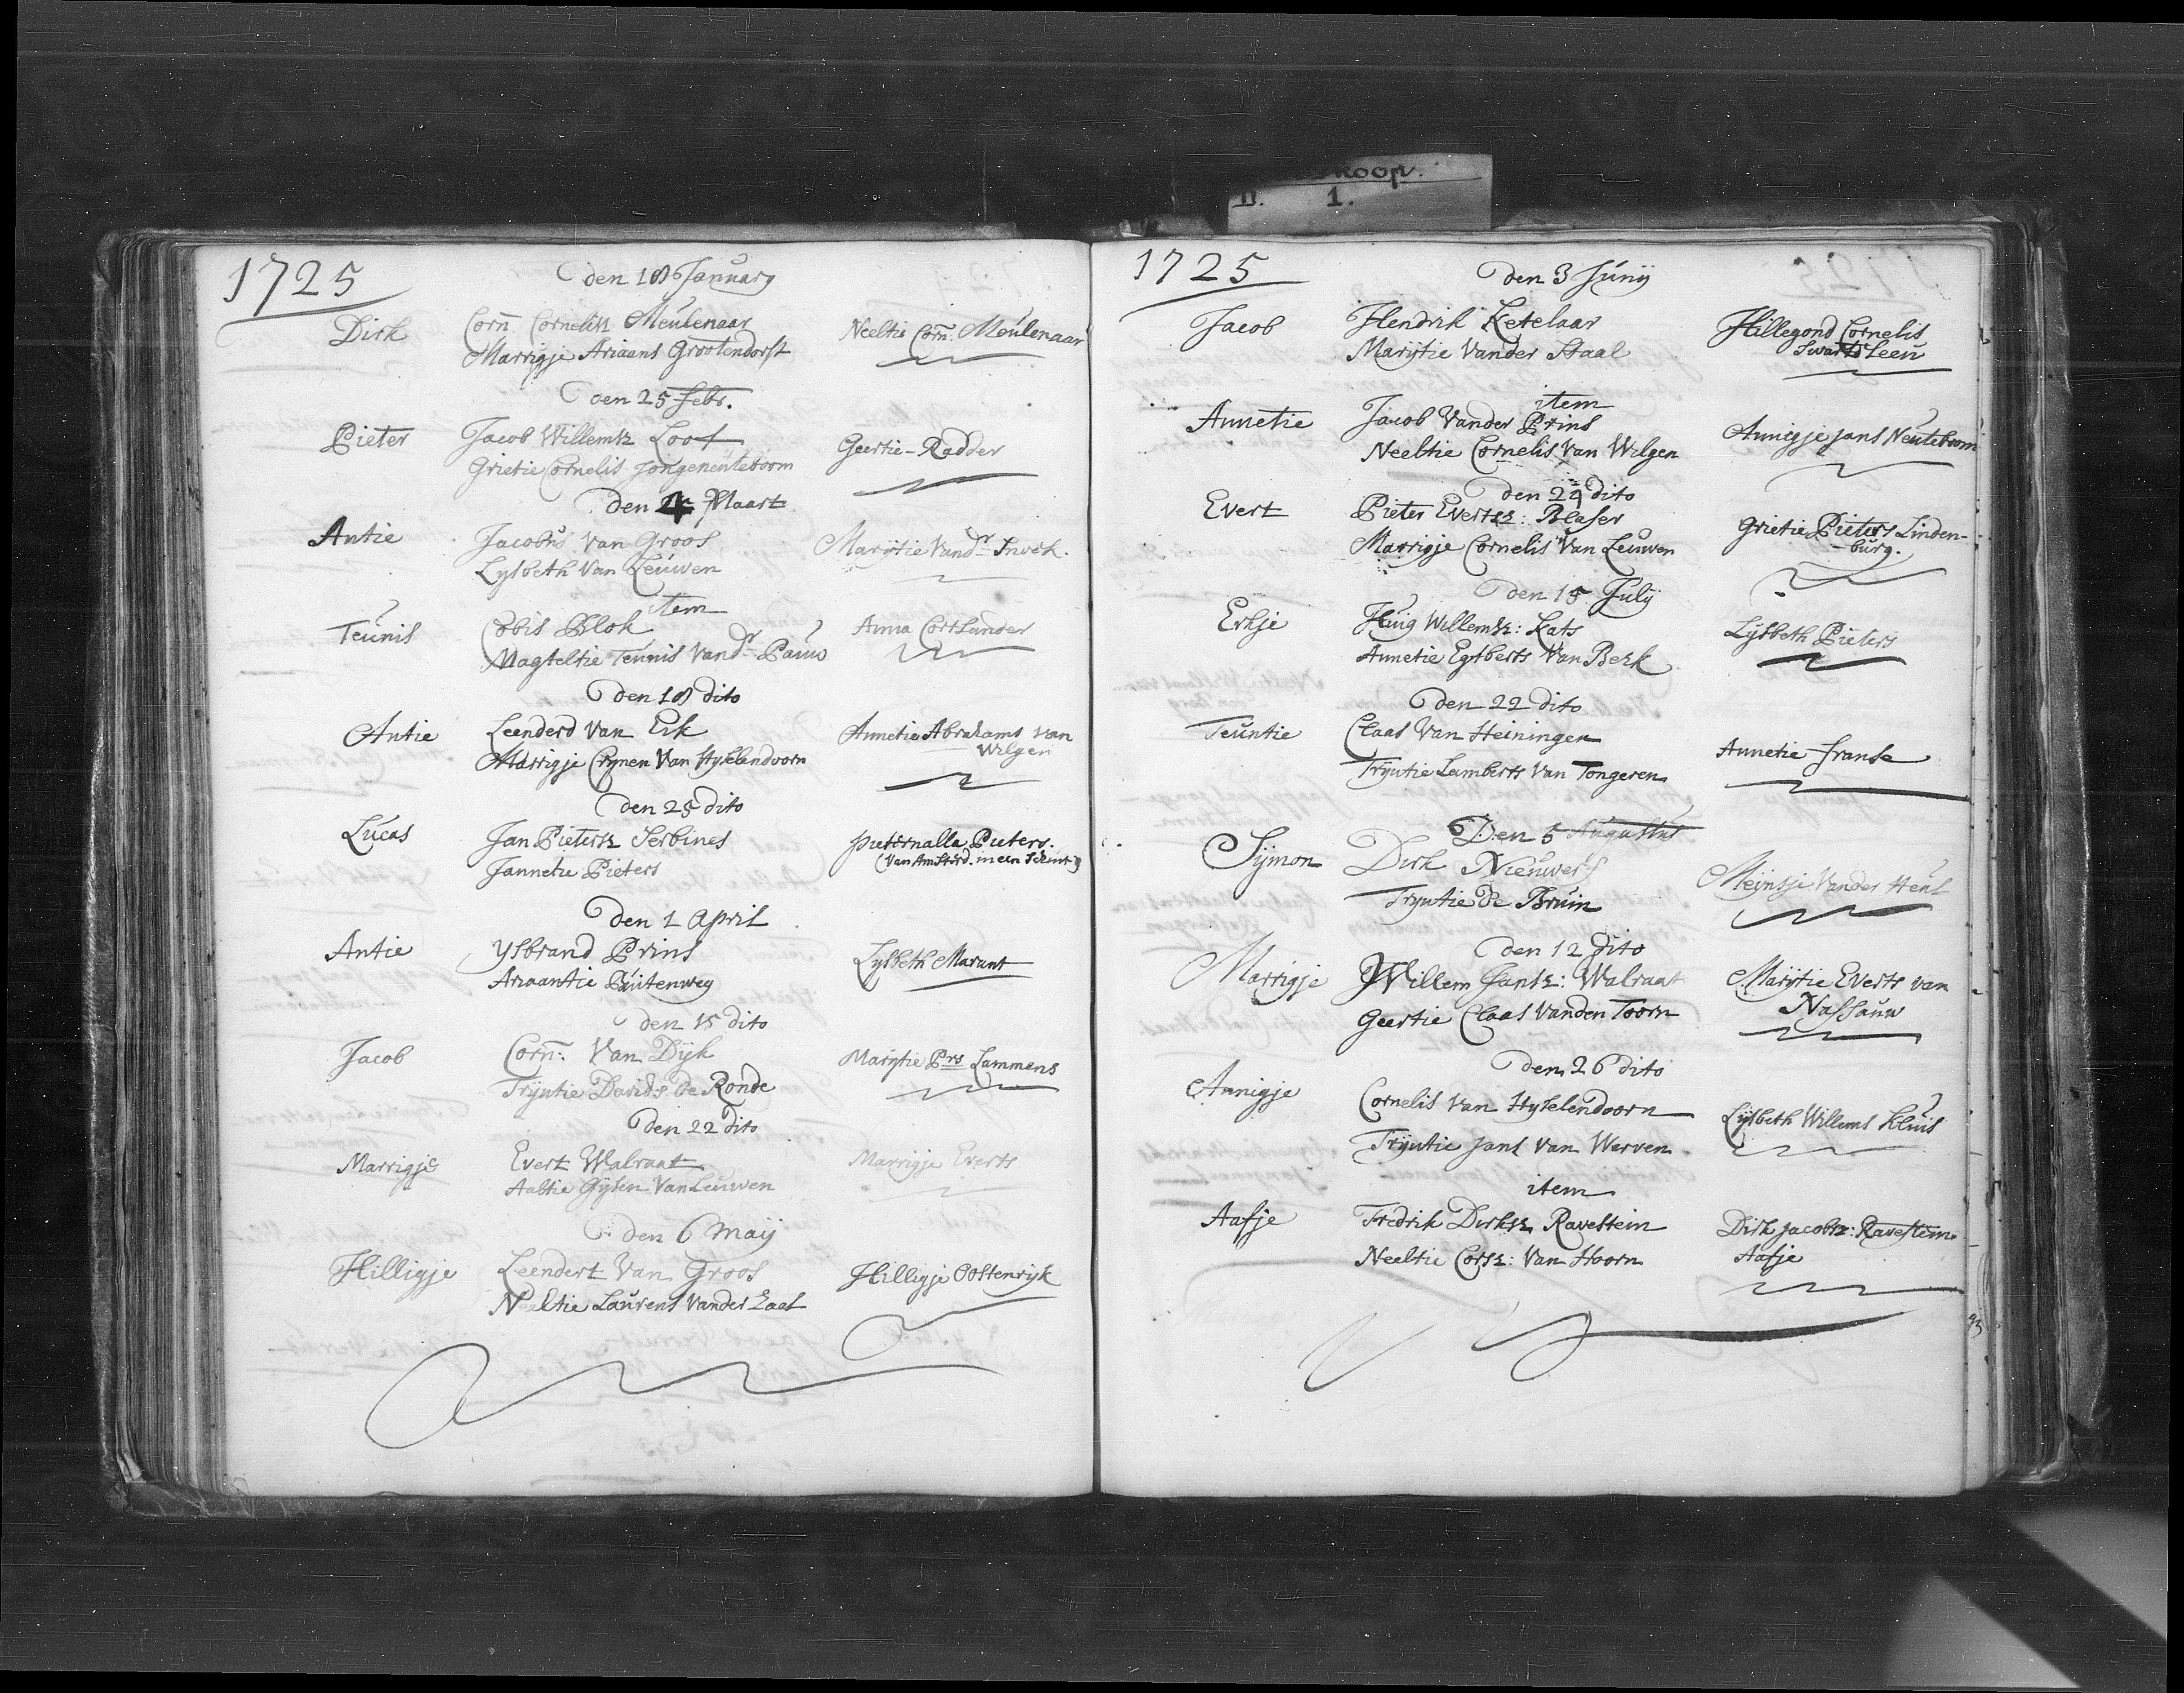 koop.
D. 1.
1725
den 18 January
Dirk
Corn. Cornelisz Meulenaar
Marrigje Ariaans Grootendorst
Neeltie Corn. Meulenaar
den 25 Febr.
Pieter
Jacob Willemsz Loof
Grietie Cornelis Jongeneuteboom
Geertie Radder
den 4 Maart
Antie
Jacobus Van Groos
Lysbeth Van Leuwen
Marijtie Vandr Snoek.
item
Teunis
Cobis Blok
Magteltie Teunis Vandr Pauw
Anna
den 18 dito
Antie
Leenderd Van Eik
Marrigje Crynen Van Hyselendoorn
Annetie Abrahams Van
Wilgen
den 25 dito
Lucas
Jan Pietersz Serbines
Jannetie Pieters
Pieternalla Pieters.
(Van Amsterd. in een
den 1 April
Antie
Ysbrand Prins
Ariaantie Buitenweg
Lysbeth Marant
den 15 dito
Jacob
Corn: Van Dijk
Tryntie Davids de Ronde
Marijtie Prs Lammens
den 22 dito
Marrigje
Evert Walraat
Aaltie Gysen Van Leuwen
Marrigje Everts
den 6 Maij
Hilligje
Leendert Van Groos
Neeltie Laurens Vander Laal
Hilligje Oostenryk
1725
Den 3 Junij
Jacob
Hendrik Ketelaar
Marijtie Vander Staal
Hillegond Cornelis
Swarts Leeu
item
Annetie
Jacob Vander Prins
Neeltie Cornelis Van Wilgen
Annigje Jans Neuteboom
den 24 dito
Evert
Pieter Evertsz: Blaser
Marrigje Cornelis Van Leuwen
Grietie Pieters Linden-
burg.
den 15 Julij
Erkje
Huig Willemsz: Kats
Annetie Egtberts Van Berk
Lysbeth Pieters
den 22 dito
Teuntie
Claas Van Heiningen
Trijntie Lamberts Van Tongeren
Annetie Franse
Den 5 Augustus
Sijmon
Dirk Nieuwers
Tryntie De Bruin
Meijnsje Vander Heul
den 12 dito
Marrigje
Willem Jansz: Walraat
Geertie Claas Vanden Toorn
Marijtie Everts van
Nassauw
den 26 dito
Annigje
Cornelis Van Hyselendoorn
Trijntie Jans Van Werven
Lijsbeth Willems Kluis
item
Aafje
Fredrik Dirksz Ravestein
Neeltie Corsz: Van Hoorn
Dirk Jacobsz: Ravestein
Aafje
93